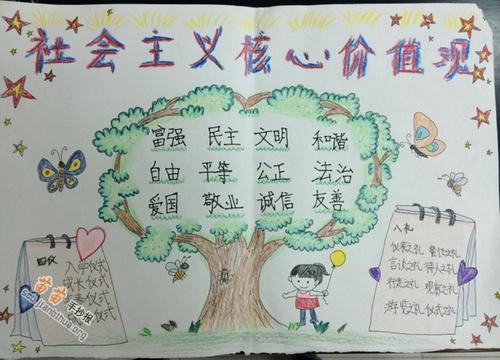 社会主义核心价值观
富强 民主 文明 和谐
自由 平等 公正 法治
爱国 敬业 诚信 友善
四仪
入学仪式
成长仪式
仪式
仪式
苗苗手抄报
shijianbihua.org
八礼
仪表之礼 餐饮之礼
言谈之礼 待人之礼
行走之礼 观赏之礼
游览之礼 仪式之礼